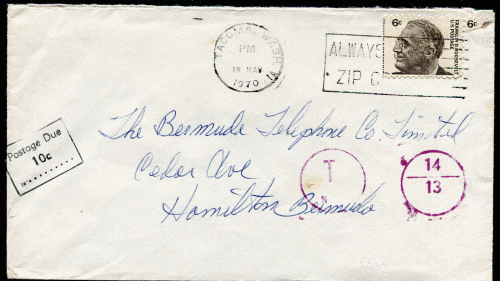 TACOMA, WASH
PM
18 MAY
1970
ALWAYS
ZIP C
6c
6c
FRANKLIN D. ROOSEVELT
U.S. POSTAGE
Postage Due
10c
The Bermuda Telephone Co. Limited
Cedar Ave
Hamilton Bermuda
T
14
13